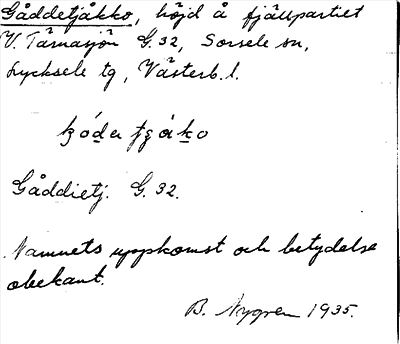 Gåddetjåkko, höjd å fjällpartiet
V. Tärnasjön G. 32, Sorsele sn,
Lycksele tg, Västerb. l.
Gåddietj. G. 32.
Namnets uppkomst och betydelse
obekant.
B. Nygren 1935.